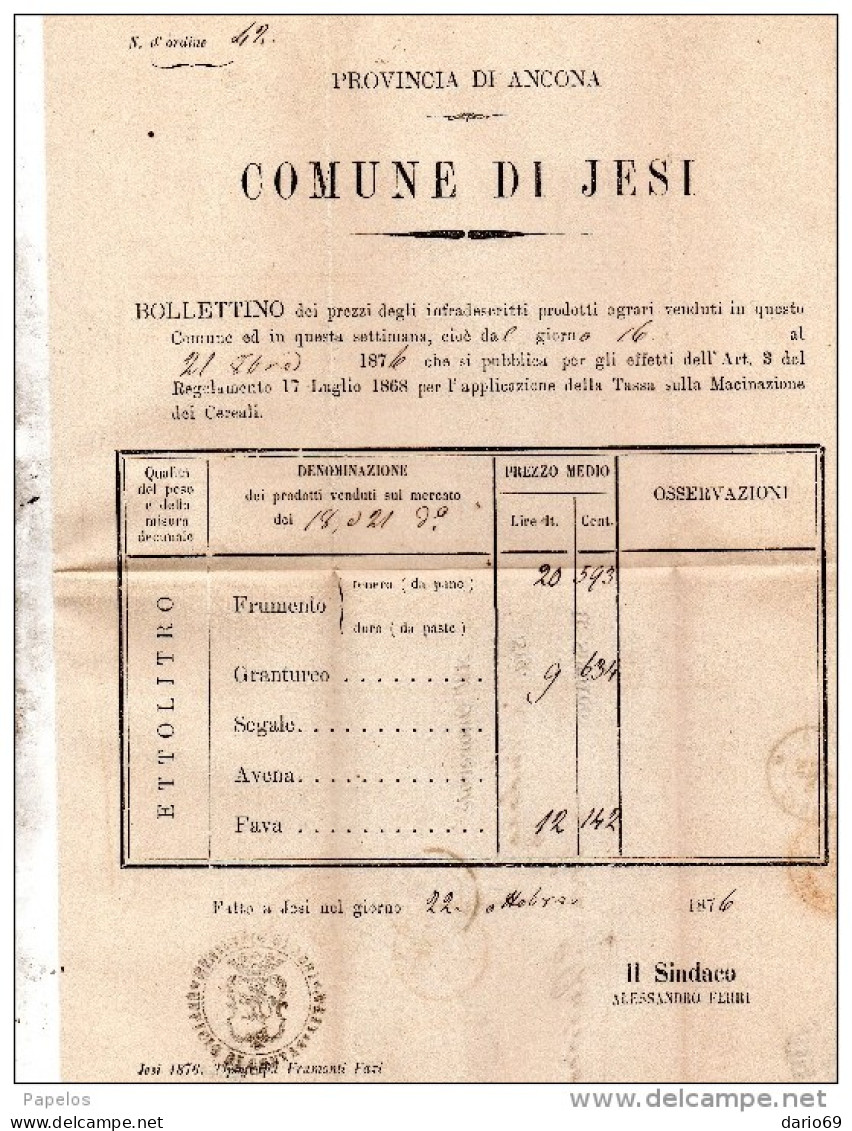 N. d'ordine 42.
PROVINCIA DI ANCONA
COMUNE DI JESI
BOLLETTINO dei prezzi degli infradescritti prodotti agrari venduti in questo
Comune ed in questa settimana, cioè dal giorno 16 al
21 8bre 1876 che si pubblica per gli effetti dell'Art. 3 del
Regolamento 17 Luglio 1868 per l'applicazione della Tassa sulla Macinazione
dei Cereali.
Qualità
del peso
e della
misura
decimale
DENOMINAZIONE
dei prodotti venduti sul mercato
dei 18, e 21 do
PREZZO MEDIO
Lire It.
Cent.
OSSERVAZIONI
ETTOLITRO
Frumento
tenero (da pane) 20 593
duro (da paste)
Granturco . . . . . . . . . . 9 634
Segale . . . . . . . . . . . . .
Avena . . . . . . . . . . . . .
Fava . . . . . . . . . . . . . 12 142
Fatto a Jesi nel giorno 22. ottobre 1876
Il Sindaco
ALESSANDRO FERRI
Jesi 1876. Tipografia Framonti Fazi
Papelos
delcampe.net
dario69